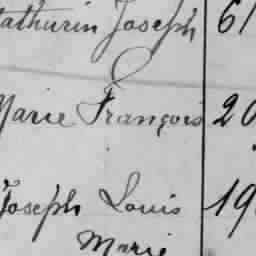 Mathurin Joseph 61
Marie François 20
Joseph Louis 19
Marie